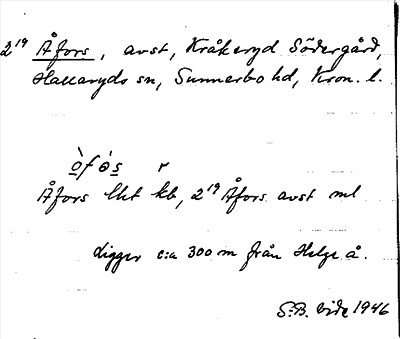 2¹⁹ Åfors, avst, Kråkeryd Södergård,
Hallaryds sn, Sunnerbo hd, Kron. l.
òfə̀s r
Åfors lht kb, 2¹⁹ Åfors avst ml
ligger c:a 300 m från Helge å.
S.B. 1946